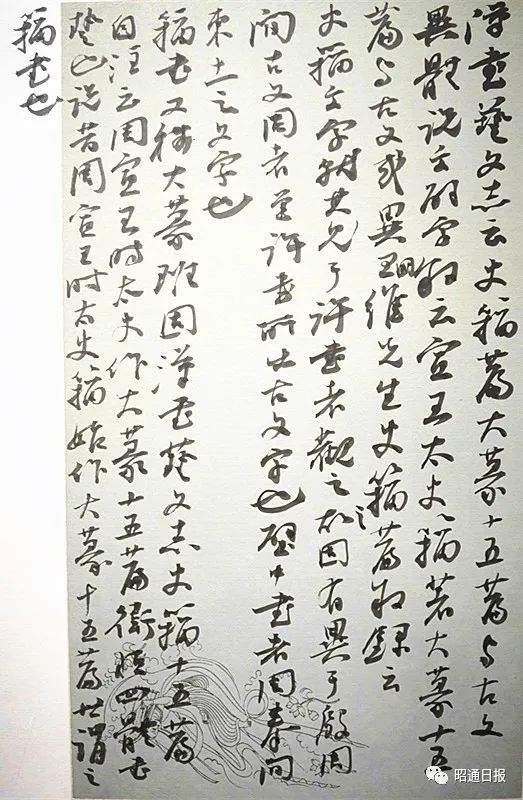 漢書藝文志云史籀篇大篆十五篇与古文
異體説文解字敘云宣王太史籀著大篆十五
篇与古文或異王國維先生史籀篇之敘錄云
史籀文字就其見于許書者觀之固有異于殷周
間古文同者至許書所出古文字也壁中書者周秦間
東土之文字也
籀書又稱大篆班固漢書藝文志史籀十五篇
自注云周宣王时太史作大篆十五篇衛恒四體書
勢也說昔周宣王时太史籀始作大篆十五篇世謂之
籀書也
昭通日报